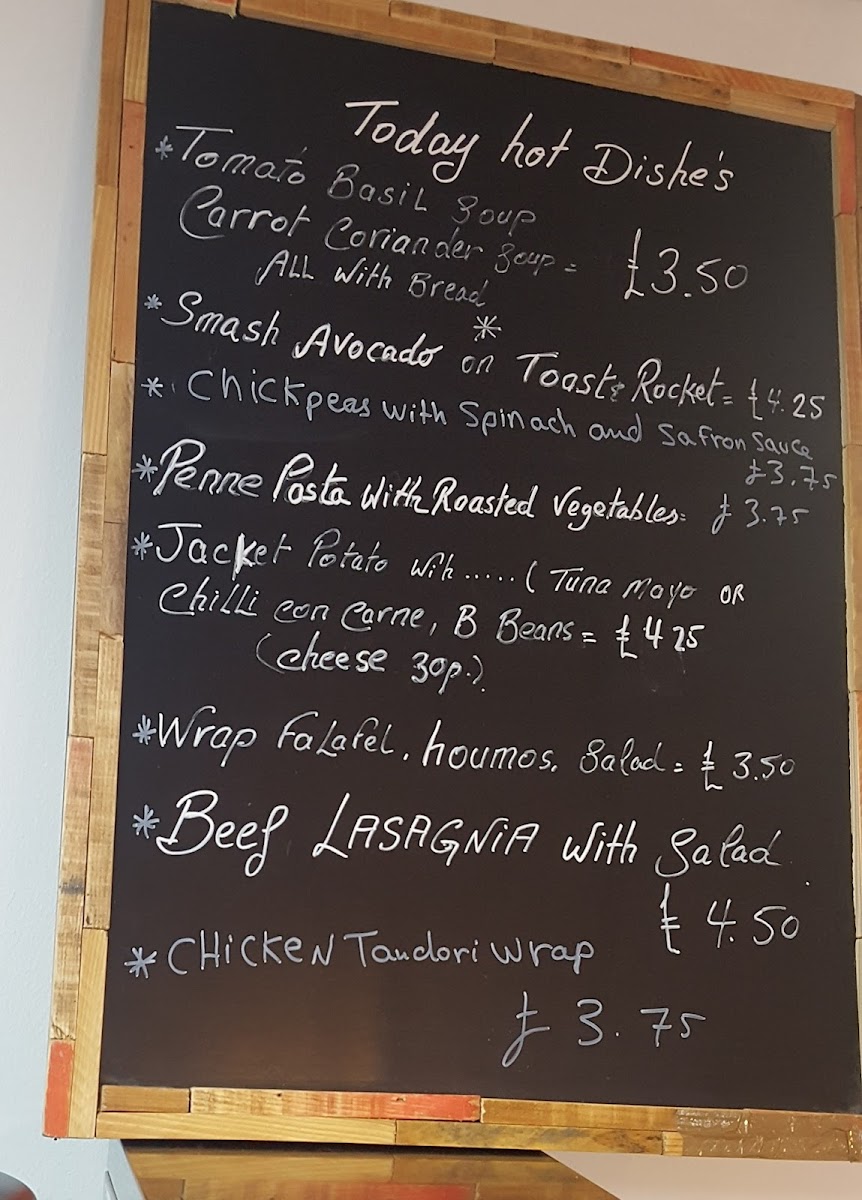 Today hot Dishe's
*Tomato Basil Soup
Carrot Coriander Soup = £3.50
ALL With Bread
* Smash Avocado on Toast & Rocket = £4.25
* Chickpeas with Spinach and Safron Sauce
£3.75
*Penne Pasta With Roasted Vegetables = £3.75
*Jacket Potato with ..... ( Tuna Mayo OR
Chilli con Carne, B Beans = £4 25
(cheese 30p.)
*Wrap Falafel, houmos, Salad = £3.50
*Beef LASAGNiA With Salad
£4.50
* CHicKeN Tandori Wrap
£3.75